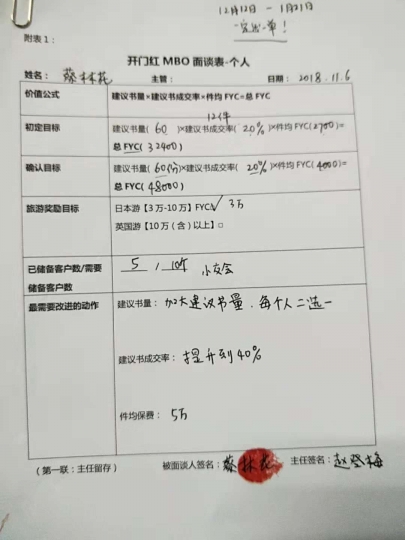 12月12日 — 1月21日
附表1：
开门红 MBO 面谈表-个人
姓名：蔡林花 主管： 日期：2018.11.6
价值公式 建议书量×建议书成交率×件均 FYC=总 FYC
12件
初定目标 建议书量( 60 )×建议书成交率( 20% )×件均 FYC(2700)=
总 FYC( 32400 )
确认目标 建议书量( 60(份) )×建议书成交率( 20% )×件均 FYC( 4000 )=
总 FYC( 48000 )
旅游奖励目标 日本游【3万-10万】FYC√ 3万
英国游【10万（含）以上】□
已储备客户数/需要储备客户数 5 / 10个 小交会
最需要改进的动作 建议书量：加大建议书量.每个人二选一
建议书成交率：提升到40%
件均保费：5万
（第一联：主任留存） 被面谈人签名：蔡林花 主任签名：赵登梅